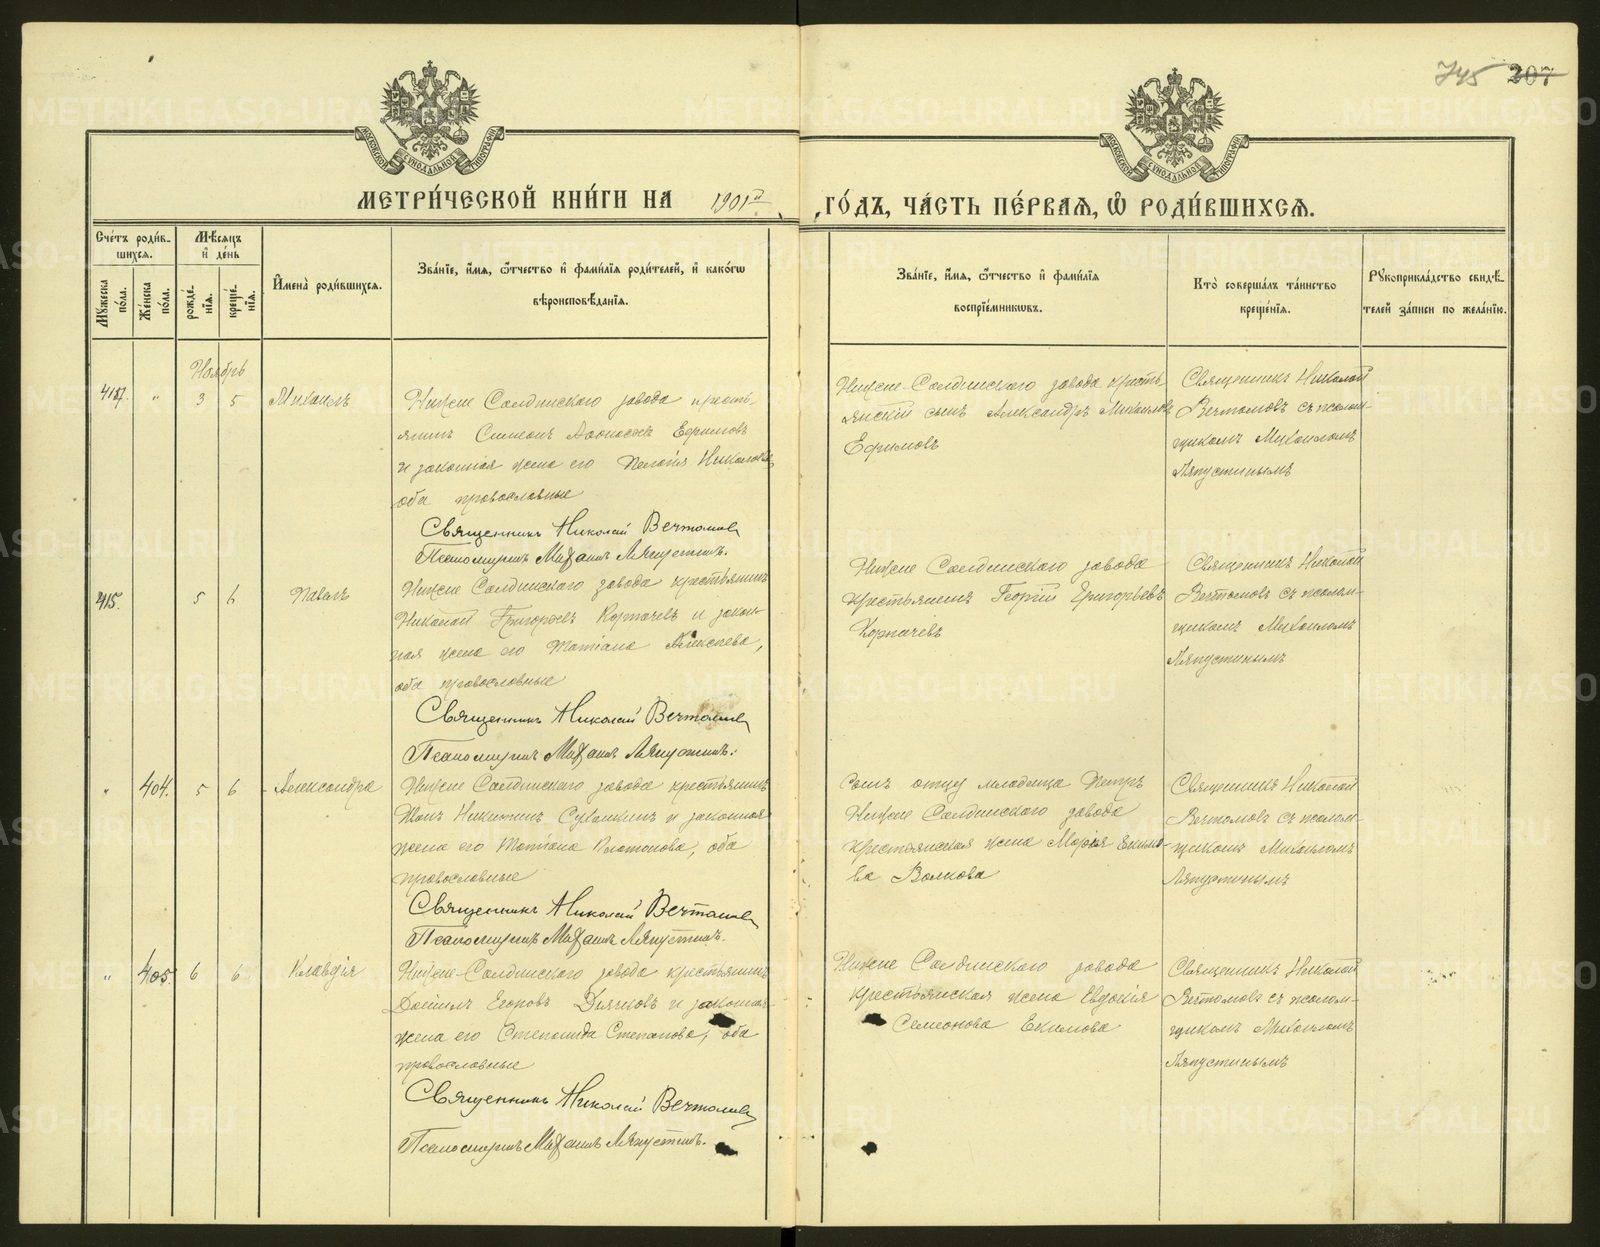 745 207
МОСКОВСКОЙ СѴНОДАЛЬНОЙ ТИПОГРАФІИ
МОСКОВСКОЙ СѴНОДАЛЬНОЙ ТИПОГРАФІИ
МЕТРИ́ЧЕСКОЙ КНИ́ГИ НА 1901й
ГО́ДЪ, ЧА́СТЬ ПЕ́РВАѦ, Ѡ҆ РОДИ́ВШИХСѦ.
Сче́тъ роди́в-
шихсѧ.
Мꙋжеска по́ла.
Же́нска по́ла.
Мѣ́сѧцъ
и҆ де́нь
рожде́нїѧ.
креще́нїѧ.
И҆мена̀ роди́вшихсѧ.
Зва́нїе, и҆́мѧ, ѻ҆́тчество и҆ фами́лїѧ роди́телей, и҆ како́гѡ
вѣроисповѣ́данїѧ.
Зва́нїе, и҆́мѧ, ѻ҆́тчество и҆ фами́лїѧ
воспрїе́мникѡвъ.
Кто̀ соверша́лъ та́инство
креще́нїѧ.
Рꙋкоприкла́дство свидѣ́-
телей за́писи по жела́нїю.
Ноябрь
„ 3 5 Михаилъ
Ниже Салдинскаго завода кресть-
янинъ Симеонъ Ефимовъ
и законная жена его Пелагія
оба православные
Священникъ Николай Вечтомовъ
Псаломщикъ Михаилъ Ляпустинъ.
Ниже-Салдинскаго завода кресть
янскій сынъ Александръ Михаиловъ
Ефимовъ
Священникъ Николай
Вечтомовъ съ псалом-
щикомъ Михаиломъ
Ляпустинымъ
415. 5 6 Павелъ
Ниже Салдинскаго завода крестьянинъ
Николай Григорьевъ Корпачевъ и закон-
ная жена его Татіана Алексѣева,
оба православные
Священникъ Николай Вечтомовъ
Псаломщикъ Михаилъ Ляпустинъ.
Ниже Салдинскаго завода
крестьянинъ Георгій Григорьевъ
Корпачевъ
Священникъ Николай
Вечтомовъ съ псалом-
щикомъ Михаиломъ
Ляпустинымъ
„ 404. 5 6 Александра
Ниже Салдинскаго завода крестьянинъ
Иванъ Никитинъ и законная
жена его Татіана Платонова, оба
православные
Священникъ Николай Вечтомовъ
Псаломщикъ Михаилъ Ляпустинъ.
сынъ отцу младенца Петръ
Ниже Салдинскаго завода
крестьянская жена Марія Екимо-
ва Волкова
Священникъ Николай
Вечтомовъ съ псалом-
щикомъ Михаиломъ
Ляпустинымъ
„ 405. 6 6 Клавдія
Ниже-Салдинскаго завода крестьянинъ
Даніилъ Егоровъ Дьячковъ и законная
жена его Степанида Степанова, оба
православные
Священникъ Николай Вечтомовъ
Псаломщикъ Михаилъ Ляпустинъ.
Ниже Салдинскаго завода
крестьянская жена Евдокія
Семеонова Екимова
Священникъ Николай
Вечтомовъ съ псалом-
щикомъ Михаиломъ
Ляпустинымъ
METRIKI.GASO-URAL.RU